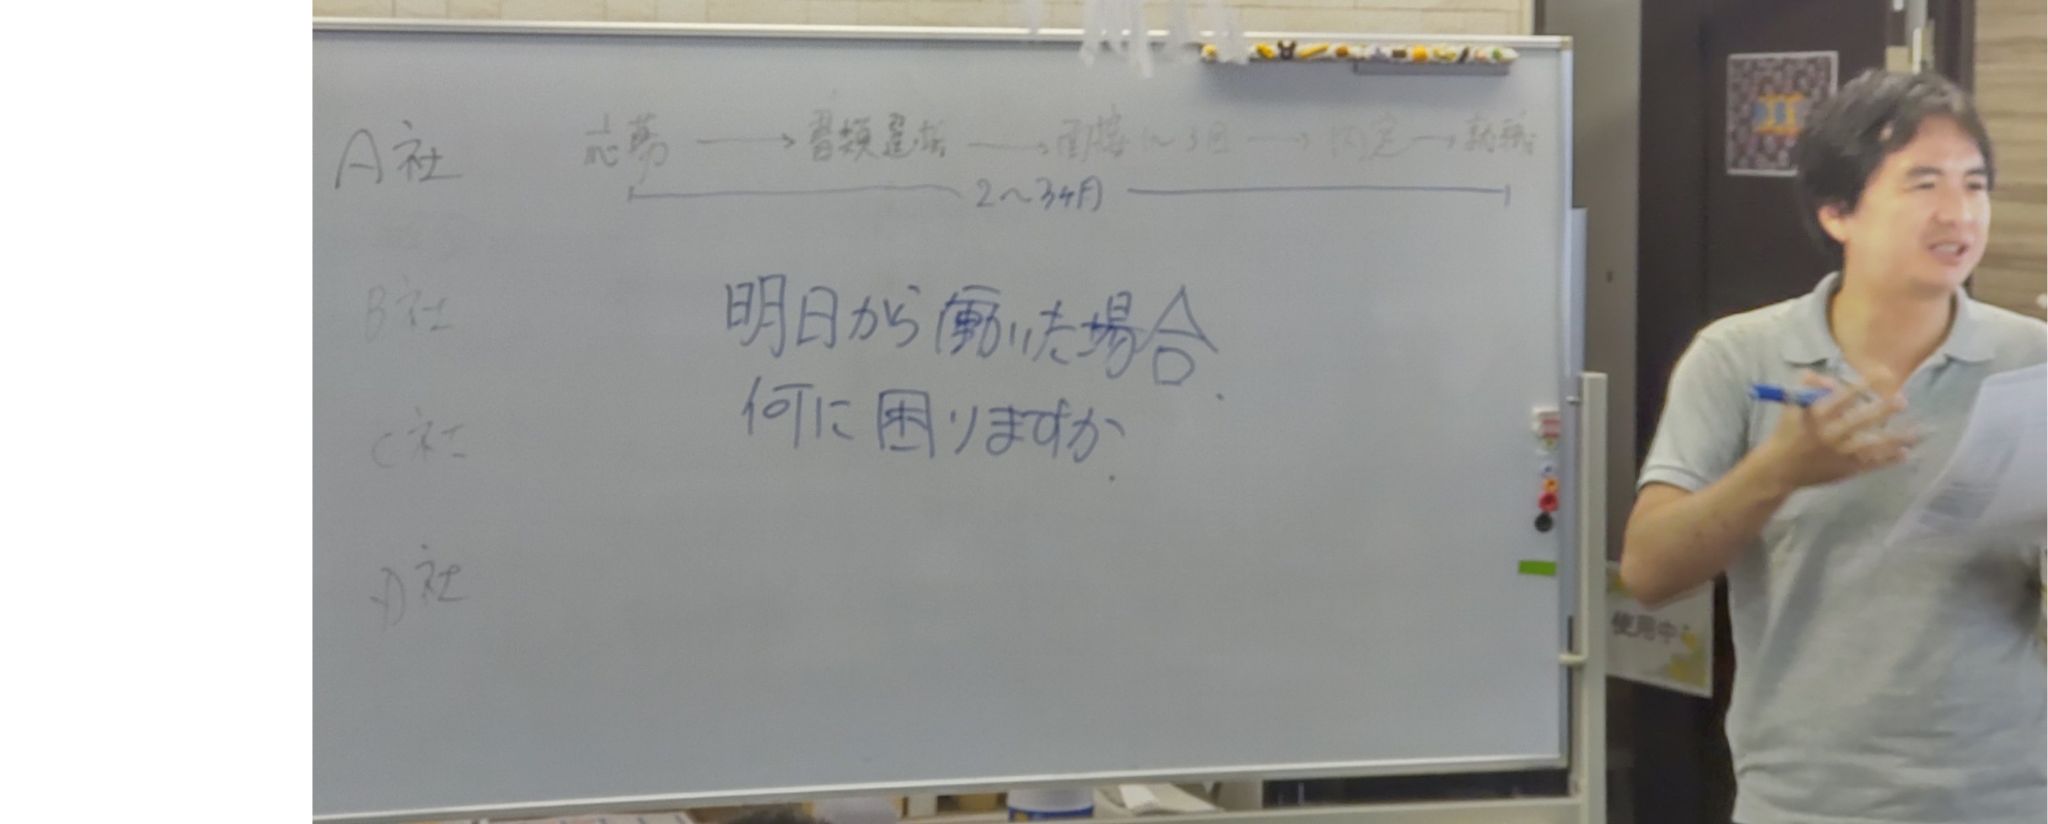 A社 応募 → 書類選考 → 面接1〜3回 → 内定 → 就職
2〜3ヶ月
B社
明日から働いた場合、
何に困りますか。
C社
D社
使用中